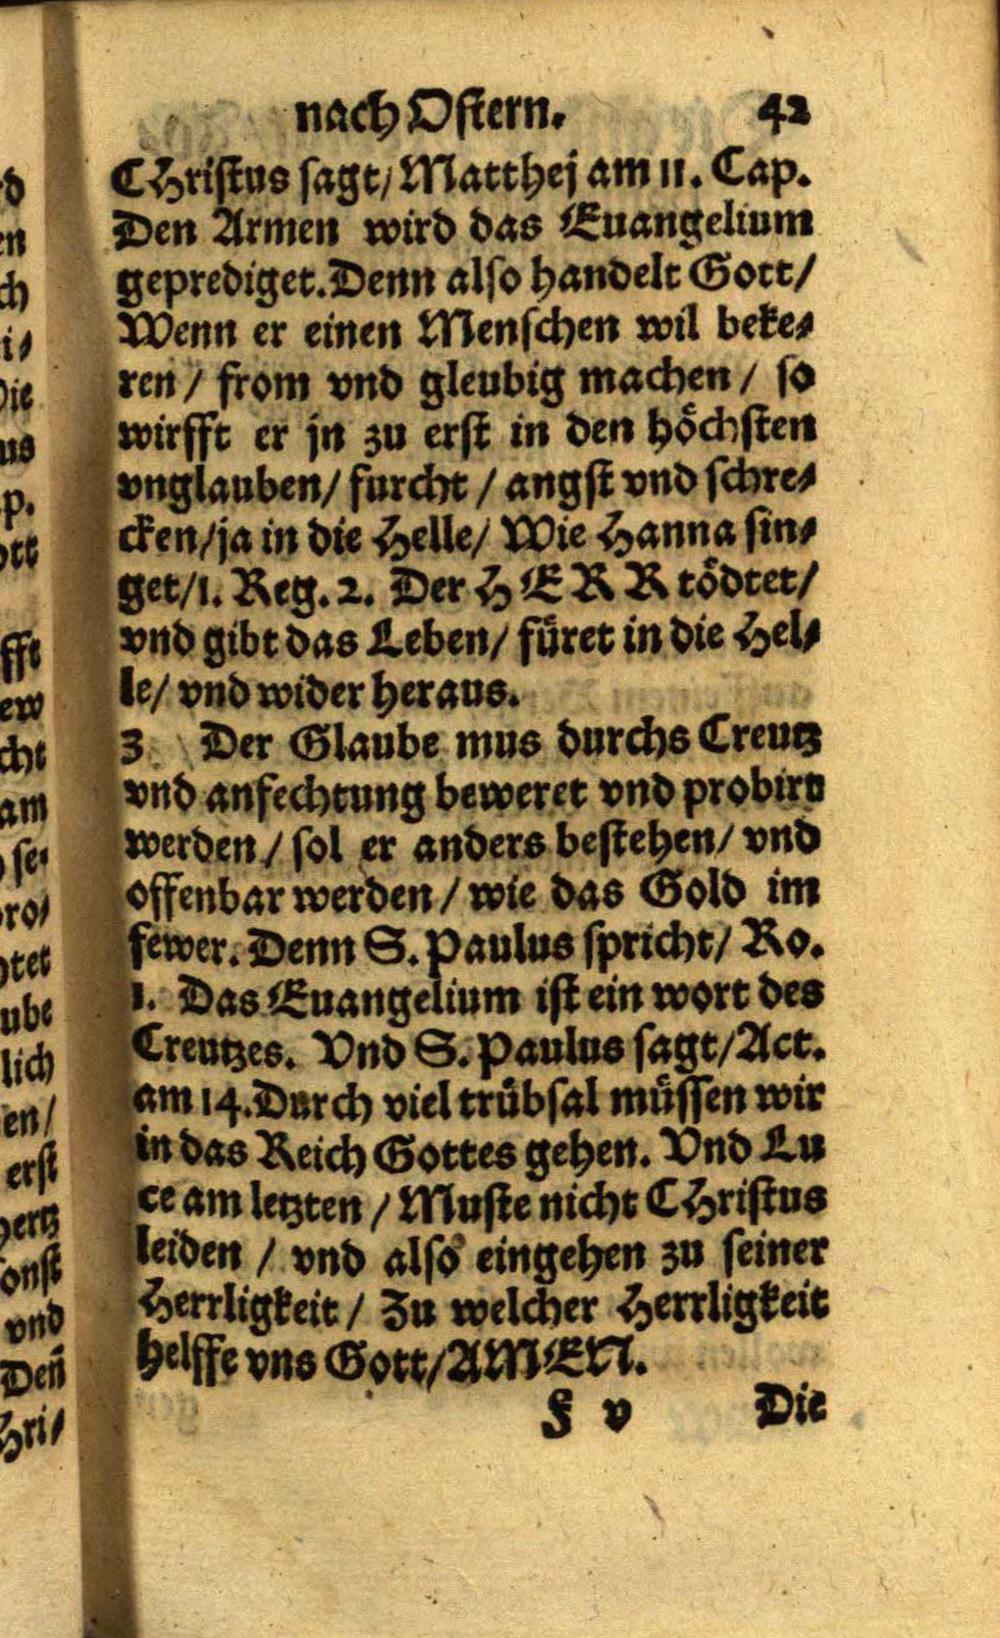 nach Ostern. 42
CHristus sagt/ Matthej am 11. Cap.
Den Armen wird das Euangelium
geprediget. Denn also handelt Gott/
Wenn er einen Menschen wil beke⸗
ren / from vnd gleubig machen / so
wirfft er jn zu erst in den hoͤchsten
vnglauben/ furcht / angst vnd schre⸗
cken/ ja in die Helle/ Wie Hanna sin⸗
get/ 1. Reg. 2. Der HERR toͤdtet/
vnd gibt das Leben/ fuͤret in die Hel⸗
le/ vnd wider heraus.
3 Der Glaube mus durchs Creutz
vnd anfechtung beweret vnd probirt
werden / sol er anders bestehen/ vnd
offenbar werden / wie das Gold im
fewer. Denn S. Paulus spricht/ Ro.
1. Das Euangelium ist ein wort des
Creutzes. Vnd S. Paulus sagt/ Act.
am 14. Durch viel truͤbsal muͤssen wir
in das Reich Gottes gehen. Vnd Lu
ce am letzten / Muste nicht CHristus
leiden / vnd also eingehen zu seiner
Herrligkeit / Zu welcher Herrligkeit
helffe vns Gott/ AMEN.
F v Die